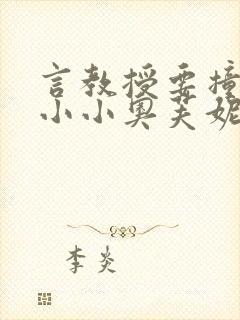 言教授要撞
小小奥芙妮
李炎